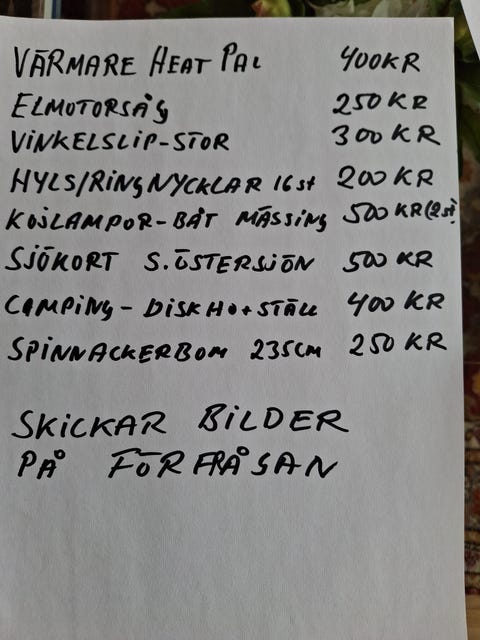 VÄRMARE HEAT PAL 400KR
ELMOTORSÅG 250 KR
VINKELSLIP-STOR 300 KR
HYLS/RINGNYCKLAR 16st 200 KR
KOJLAMPOR-BÅT MÄSSING 500 KR(2st)
SJÖKORT S.ÖSTERSJÖN 500 KR
CAMPING - DISKHO+STÄLL 400 KR
SPINNACKERBOM 235CM 250 KR
SKICKAR BILDER
PÅ FÖRFRÅGAN